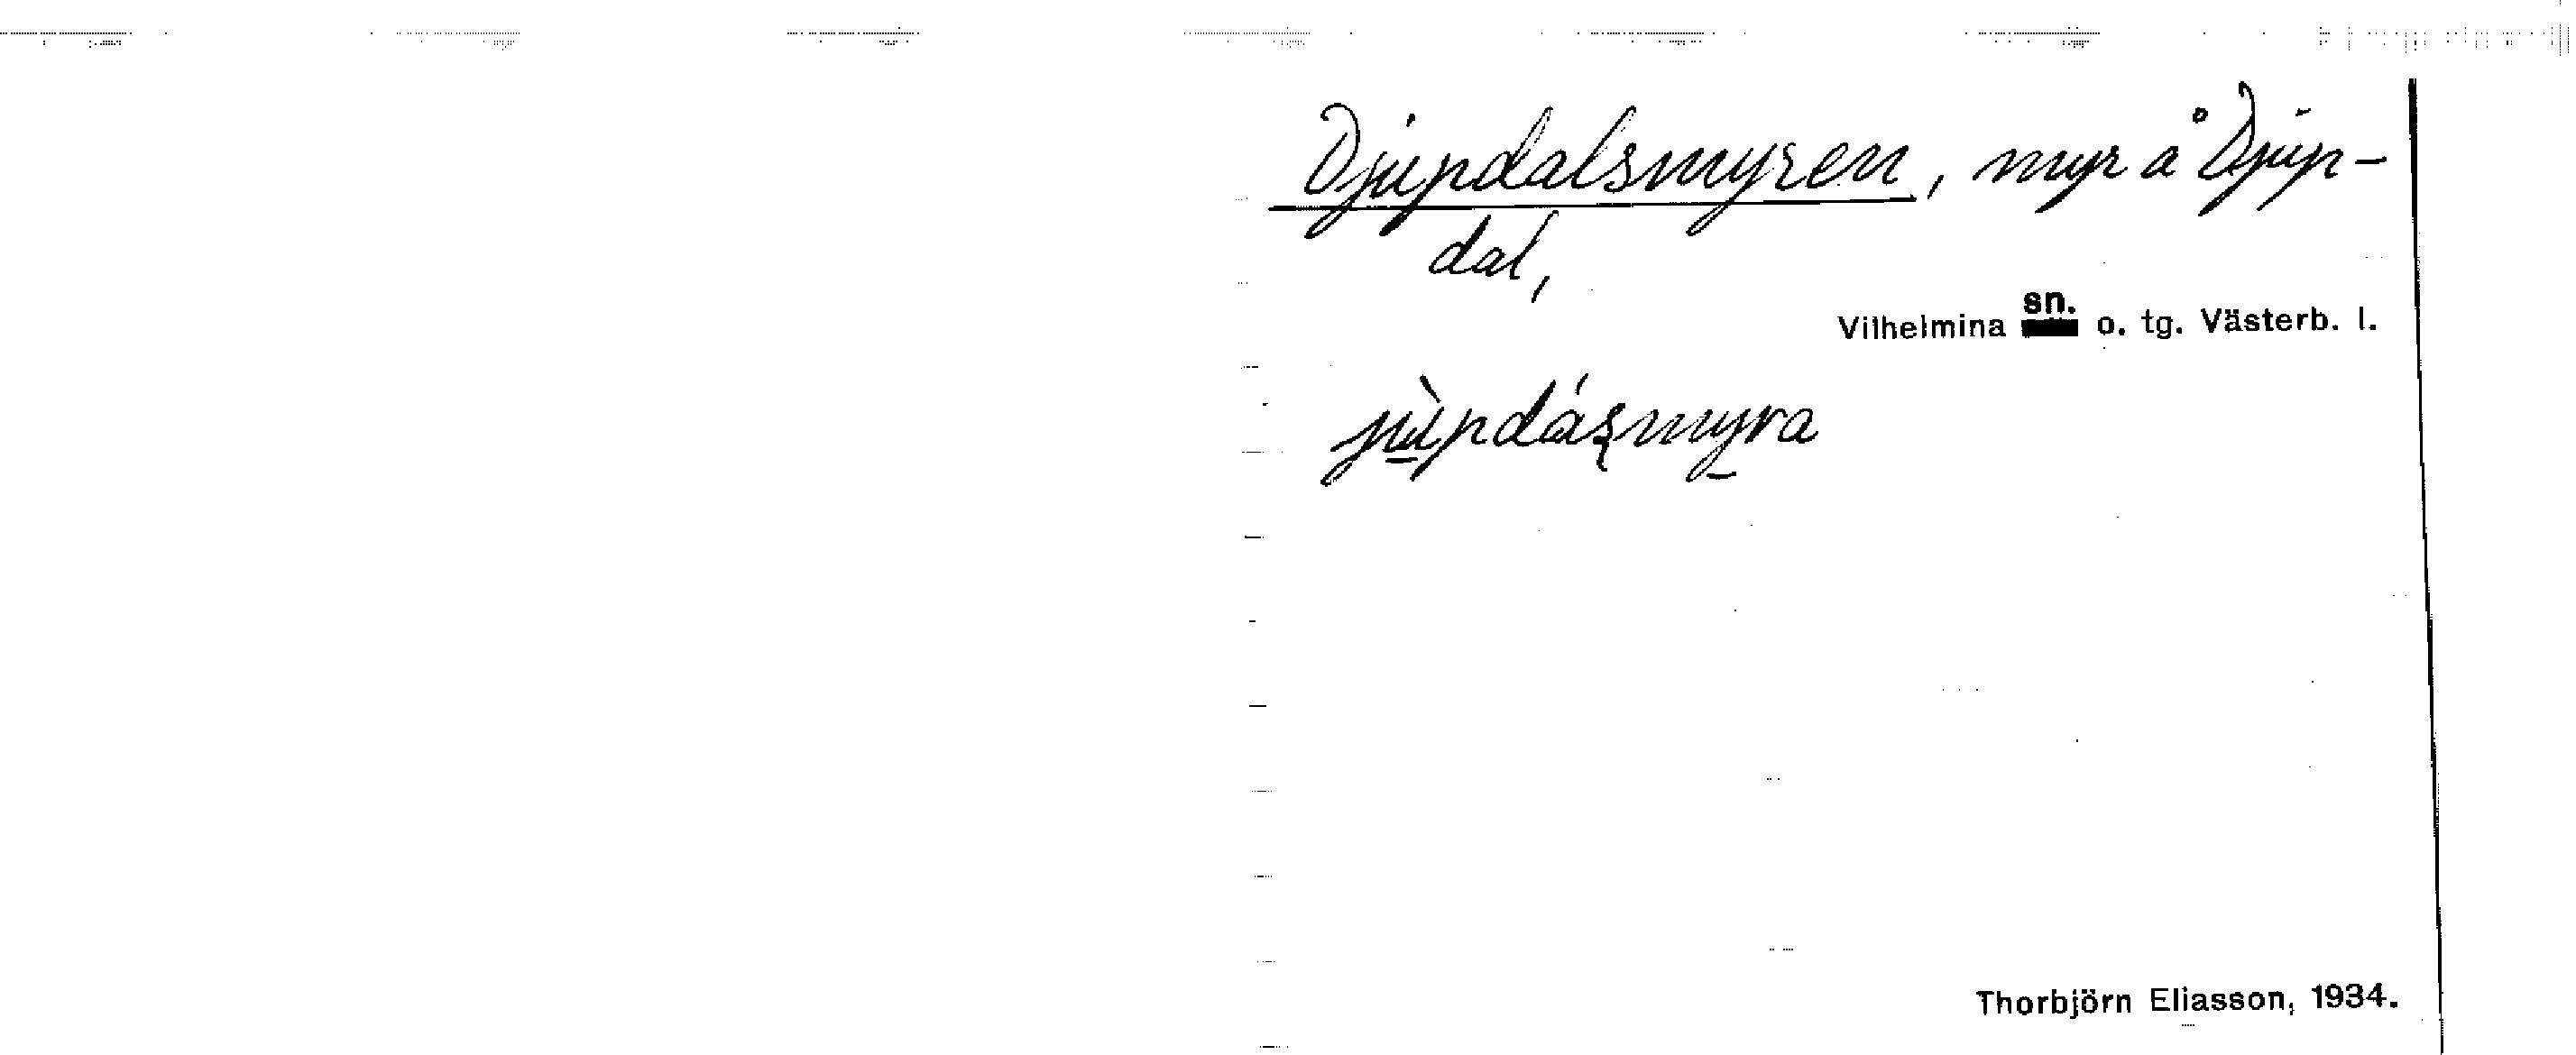 Djupdalsmyren, myr å Djup-
dal,
Vilhelmina sn. o. tg. Västerb. l.
jùpdáʂmyra
Thorbjörn Eliasson, 1934.